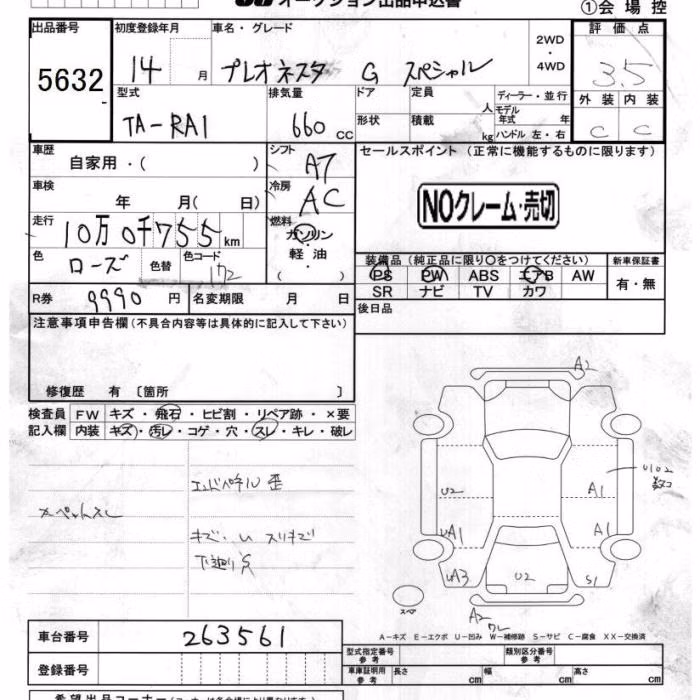 オークション出品申込書
①会場控
出品番号 初度登録年月 車名・グレード 2WD・4WD 評価点
5632 14 月 プレオネスタ G スペシャル 3.5
型式 排気量 ドア 定員 人 ディーラー・並行 外装 内装
TA-RA1 660 cc 形状 積載 kg モデル年式 年 ハンドル 左・右 C C
車歴 自家用・( ) シフト A7 セールスポイント (正常に機能するものに限ります)
車検 年 月( 日) 冷房 AC
NOクレーム・売切
走行 10万0千755km 燃料 ガソリン・軽油 ( )
色 ローズ 色替 色コード 172
装備品 (純正品に限り○をつけてください) 新車保証書
PS PW ABS エアB AW 有・無
SR ナビ TV カワ
R券 9990円 名変期限 月 日 後日品
注意事項申告欄 (不具合内容等は具体的に記入して下さい)
修復歴 有 〔箇所 〕
検査員 FW キズ・飛石・ヒビ割・リペア跡・×要
記入欄 内装 キズ・汚レ・コゲ・穴・スレ・キレ・破レ
A2
U102
U2 A1
UA1 A1
UA3 U2 S1
スペア
A2
A-キズ E-エクボ U-凹み W-補修跡 S-サビ C-腐食 XX-交換済
車台番号 263561
型式指定番号 参考 類別区分番号 参考
登録番号 車庫証明用 参考 長さ cm 幅 cm 高さ cm
希望出品コーナー